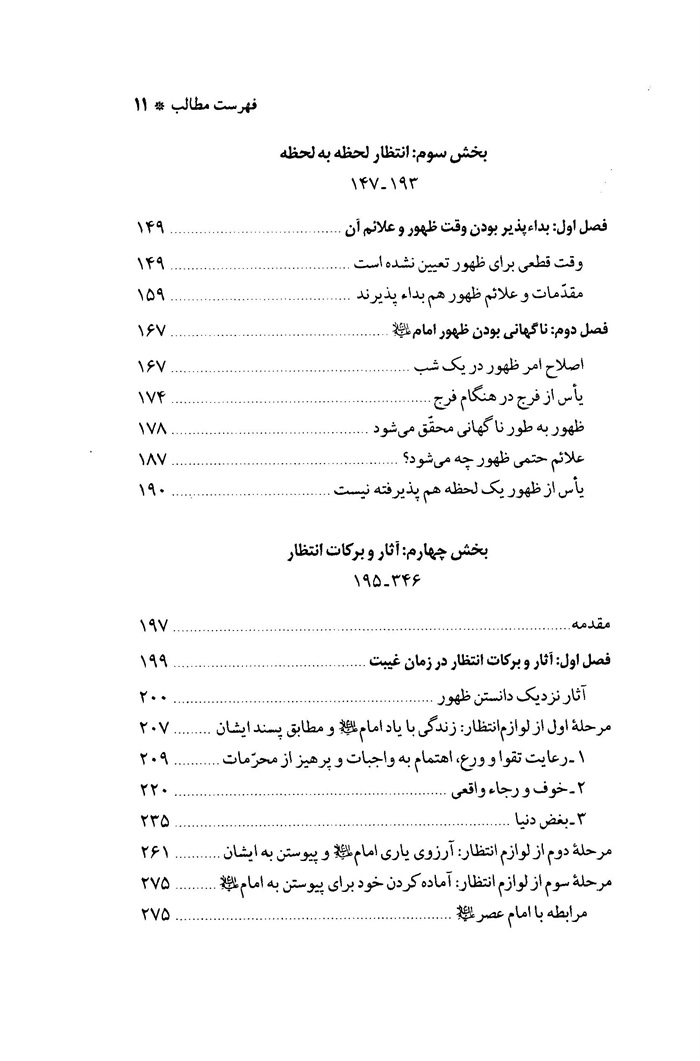 فهرست مطالب * ۱۱
بخش سوم: انتظار لحظه به لحظه
۱۹۳ـ۱۴۷
فصل اول: بداءپذیر بودن وقت ظهور و علائم آن ........ ۱۴۹
وقت قطعی برای ظهور تعیین نشده است ........ ۱۴۹
مقدّمات و علائم ظهور هم بداء پذیرند ........ ۱۵۹
فصل دوم: ناگهانی بودن ظهور امام ........ ۱۶۷
اصلاح امر ظهور در یک شب ........ ۱۶۷
یأس از فرج در هنگام فرج ........ ۱۷۴
ظهور به طور ناگهانی محقّق می‌شود ........ ۱۷۸
علائم حتمی ظهور چه می‌شود؟ ........ ۱۸۷
یأس از ظهور یک لحظه هم پذیرفته نیست ........ ۱۹۰
بخش چهارم: آثار و برکات انتظار
۳۴۶ـ۱۹۵
مقدمه ........ ۱۹۷
فصل اول: آثار و برکات انتظار در زمان غیبت ........ ۱۹۹
آثار نزدیک دانستن ظهور ........ ۲۰۰
مرحلهٔ اول از لوازم انتظار: زندگی با یاد امام و مطابق پسند ایشان ........ ۲۰۷
۱ـ رعایت تقوا و ورع، اهتمام به واجبات و پرهیز از محرّمات ........ ۲۰۹
۲ـ خوف و رجاء واقعی ........ ۲۲۰
۳ـ بغض دنیا ........ ۲۳۵
مرحلهٔ دوم از لوازم انتظار: آرزوی یاری امام و پیوستن به ایشان ........ ۲۶۱
مرحلهٔ سوم از لوازم انتظار: آماده کردن خود برای پیوستن به امام ........ ۲۷۵
مرابطه با امام عصر ........ ۲۷۵